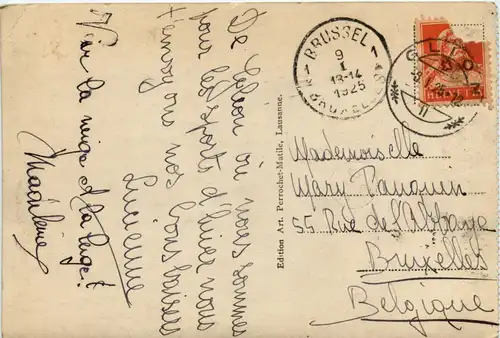 De Glion où nous sommes
pour les sports d'hiver nous
t'envoyons nos bons baisers
Lucienne
Vive la neige et la luge!
Madeleine
Edition Art. Perrochet-Matile, Lausanne.
BRUSSEL
9
I
13-14
1925
BRUXELLES
GLION
Mademoiselle
Mary Pauquen
55 Rue de l'Abbaye
Bruxelles
Belgique